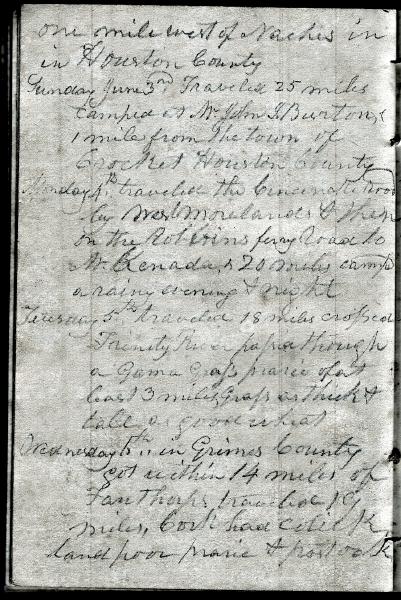 one mile west of Naches in
in Houston County
Sunday June 3rd Traveled 25 miles
camped at Mr John J Burtons
1 mile from the town of
Crocket Houston County
Monday 4th traveled the Cincinatti road
by Westmorelands & then
on the Robbins ferry road to
Mr 20 miles camp
a rainy evening & night
Tuesday 5th traveled 18 miles crossed
Trinity River passed though
a Gama Grass prarie of at
least 3 miles Grass as thick &
tall as good wheat
Wednesday 6th in Grimes County
got within 14 miles of
Fanthorps traveled 19
miles, had
land poor prarie & post oak